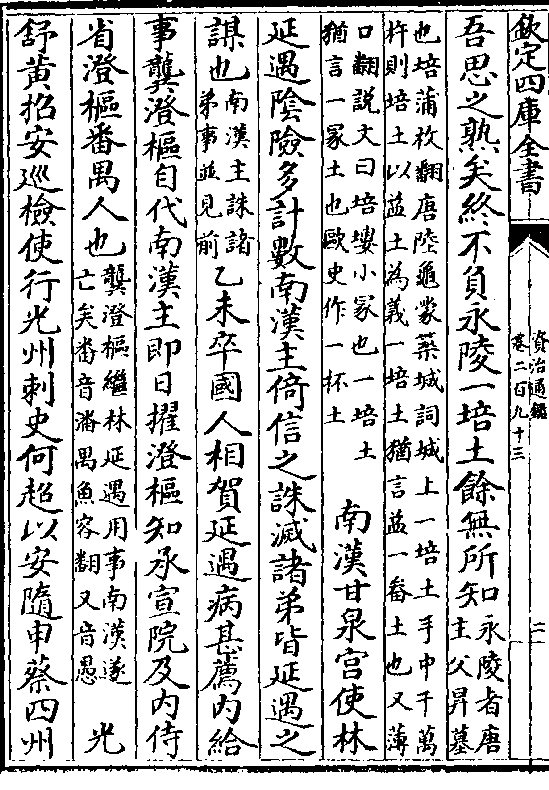 欽定四庫全書
資治通鑑
卷二百九十三
二
吾思之熟矣終不負永陵一培土餘無所知永陵者唐
主父昇墓
也培蒲枚翻唐陸龜蒙築城詞城上一培土手中千萬
杵則培土以益土為義一培土猶言益一畚土也又薄
口翻說文曰培塿小冢也一培土
猶言一冢土也歐史作一杯土
南漢甘泉宮使林
延遇陰險多計數南漢主倚信之誅滅諸弟皆延遇之
謀也南漢主誅諸
弟事並見前
乙未卒國人相賀延遇病甚薦内給
事龔澄樞自代南漢主即日擢澄樞知承宣院及内侍
省澄樞番禺人也龔澄樞繼林延遇用事南漢遂
亡矣番音潘禺魚容翻又音愚
光
舒黄招安巡檢使行光州刺史何超以安隨申蔡四州